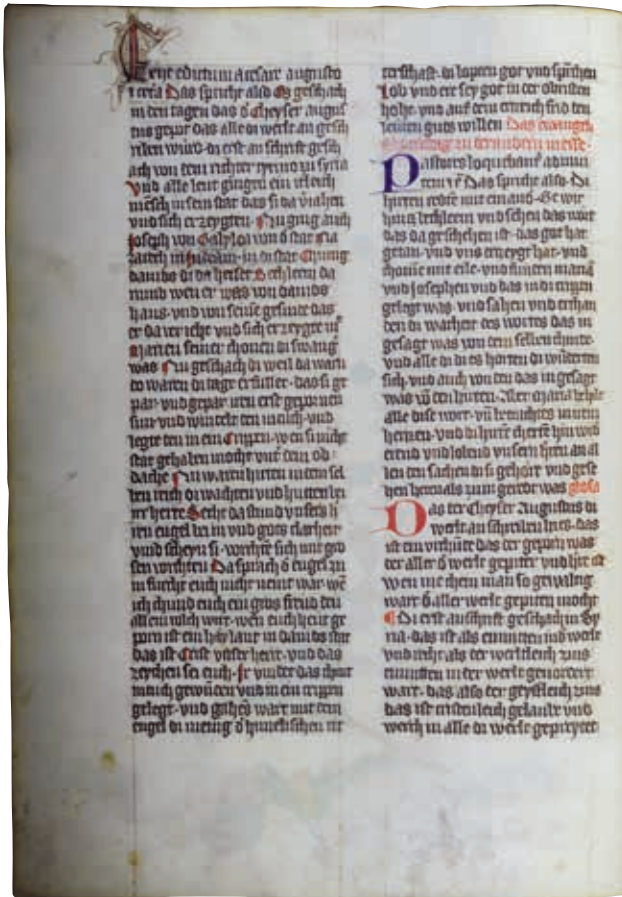 Exiit edictum a cesare augusto
Das spricht also Es geschach
in den tagen das d Cheyser augus
tus gepot das alle di werlt an geschr
riben wurd di erst an schrift gesch
ach von dem richter zu syria
Vnd alle leut gingen
mensch in sein stat das si da
vnd sich erzeygten Nu ging auch
Joseph von Galylea von d stat Na
zareth in Judeam in di stat Chunig
dauids di da heisset Bethleem da
rumb wen er was von dauids
haus vnd von seinem gesinde das
er da veriehe vnd sich erzeygte mit
Marien seiner chonen di swang
was Nu geschach di weil da warn
do waren di tage erfullet das si ge
par vnd gepar iren erst geporen
sun vnd wincelt den in tuch vnd
legte den in ein Crippen wen si nicht
stat gehaben mocht vnter dem ob
dache Nu waren hirten in dem sel
ben reich di wachten vnd hutten
ir herte Seche da stund vnsers h
ren engel bei in vnd gots clarheit
vmb scheyn si vorchten sich mit gro
sen vorchten Da sprach d engel zu
in furcht euch nicht nemt war we
ich chund euch ein gros freud den
all ein volch wirt wen euch heut ge
porn ist ein heylant in dauids stat
das ist Crist vnser herr vnd das
zeychen sei euch Ir vindet das chint
in tuch gewunden vnd in ein crippen
gelegt vnd gahes wart mit dem
engel di menig d himelischen rit
terschaft di lopten got vnd sprachen
Lob vnd ere sey got in der obristen
hohe vnd auf dem ertrich frid den
leuten guts willen Das ewangeli
in der andern messe
Pastores loquebantur ad inui
cem Das spricht also Di
hirten redten mit ein and Ge wir
hintz bethleem vnd sehen das wort
das da geschehen ist das got hat
getan vnd vns erzeygt hat vnd
chomen mit eile vnd funden mariam
vnd josephen vnd das in di crippen
gelegt was vnd sahen vnd erchan
ten di warheit des wortes das in
gesagt was von dem selben chinde
vnd alle di di es horten di wunderten
sich vnd auch von den das in gesagt
was von den hirten Aber maria behilt
alle dise wort vnd betrachtet in irem
herczen vnd di hirten cherten hin wid
erend vnd lobend vnsern herren an al
len den sachen di si gehort vnd gese
hen heten als zu in geredt was glosa
Das der Cheyser Augustus di
werlt an schreiben hies das
ist ein vrchund das der geporn was
der aller d werlt geputet vnd hie ist
wen nie chein man so gewaltig
wart d aller werlt geputen mocht
Di erst anschrift geschach in Sy
ria das ist als en mitten in d werlt
vnd recht als der werltleich zins
en mitten in der werlt geuordert
wart das also der geystleich zins
das ist cristenleich gelaub vnd
werch in alle di werlt gepreytet